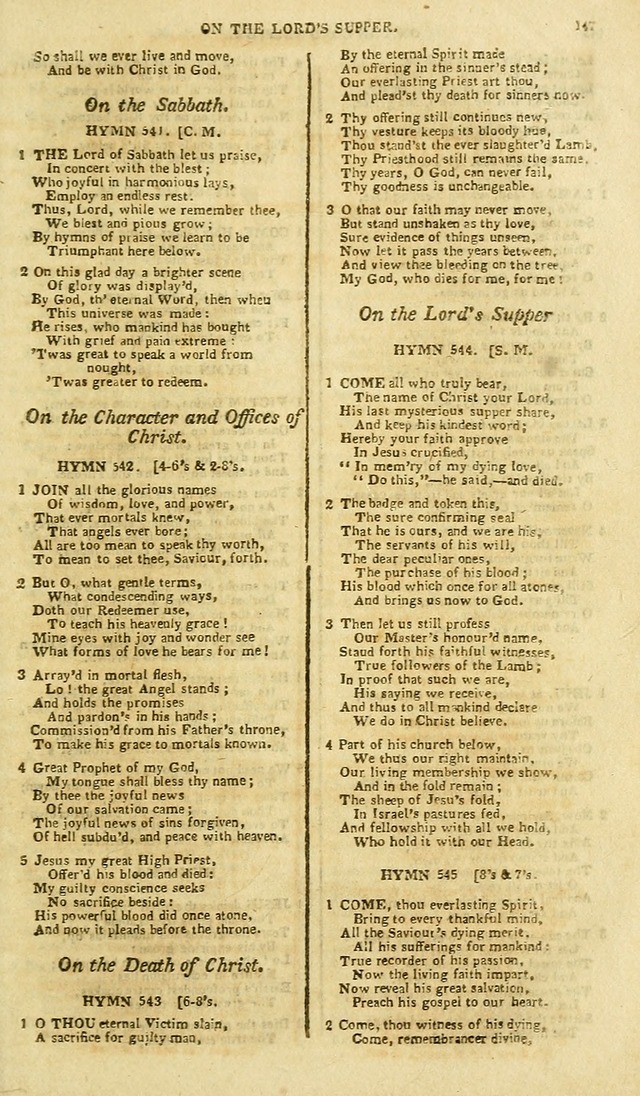 ON THE LORD'S SUPPER.
So shall we ever live and move,
And be with Christ in God.
On the Sabbath.
HYMN 541. [C. M.
1 THE Lord of Sabbath let us praise,
In concert with the blest;
Who joyful in harmonious lays,
Employ an endless rest.
Thus, Lord, while we remember thee,
We blest and pious grow;
By hymns of praise we learn to be
Triumphant here below.
2 On this glad day a brighter scene
Of glory was display'd,
By God, th' eternal Word, then when
This universe was made:
He rises, who mankind has bought
With grief and pain extreme:
'Twas great to speak a world from
nought,
'Twas greater to redeem.
On the Character and Offices of
Christ.
HYMN 542. [4-6's & 2-8's.
1 JOIN all the glorious names
Of wisdom, love, and power,
That ever mortals knew,
That angels ever bore;
All are too mean to speak thy worth,
To mean to set thee, Saviour, forth.
2 But O, what gentle terms,
What condescending ways,
Doth our Redeemer use,
To teach his heavenly grace!
Mine eyes with joy and wonder see
What forms of love he bears for me!
3 Array'd in mortal flesh,
Lo! the great Angel stands;
And holds the promises
And pardon's in his hands;
Commission'd from his Father's throne,
To make his grace to mortals known.
4 Great Prophet of my God,
My tongue shall bless thy name;
By thee the joyful news
Of our salvation came;
The joyful news of sins forgiven,
Of hell subdu'd, and peace with heaven.
5 Jesus my great High Priest,
Offer'd his blood and died:
My guilty conscience seeks
No sacrifice beside:
His powerful blood did once atone,
And now it pleads before the throne.
On the Death of Christ.
HYMN 543 [6-8's.
1 O THOU eternal Victim slain,
A sacrifice for guilty man,
By the eternal Spirit made
An offering in the sinner's stead;
Our everlasting Priest art thou,
And plead'st thy death for sinners now.
2 Thy offering still continues new,
Thy vesture keeps its bloody hue,
Thou stand'st the ever slaughter'd Lamb,
Thy Priesthood still remains the same,
Thy years, O God, can never fail,
Thy goodness is unchangeable.
3 O that our faith may never move,
But stand unshaken as thy love,
Sure evidence of things unseen,
Now let it pass the years between,
And view thee bleeding on the tree,
My God, who dies for me, for me!
On the Lord's Supper
HYMN 544. [S. M.
1 COME all who truly bear,
The name of Christ your Lord,
His last mysterious supper share,
And keep his kindest word;
Hereby your faith approve
In Jesus crucified,
" In mem'ry of my dying love,
" Do this,"—he said,—and died.
2 The badge and token this,
The sure confirming seal
That he is ours, and we are his,
The servants of his will,
The dear peculiar ones,
The purchase of his blood;
His blood which once for all atones,
And brings us now to God.
3 Then let us still profess
Our Master's honour'd name,
Stand forth his faithful witnesses,
True followers of the Lamb;
In proof that such we are,
His saying we receive,
And thus to all mankind declare
We do in Christ believe.
4 Part of his church below,
We thus our right maintain,
Our living membership we show,
And in the fold remain;
The sheep of Jesu's fold,
In Israel's pastures fed,
And fellowship with all we hold,
Who hold it with our Head.
HYMN 545 [8's & 7's.
1 COME, thou everlasting Spirit,
Bring to every thankful mind,
All the Saviour's dying merit,
All his sufferings for mankind:
True recorder of his passion,
Now the living faith impart,
Now reveal his great salvation,
Preach his gospel to our heart.
2 Come, thou witness of his dying,
Come, remembrancer divine,